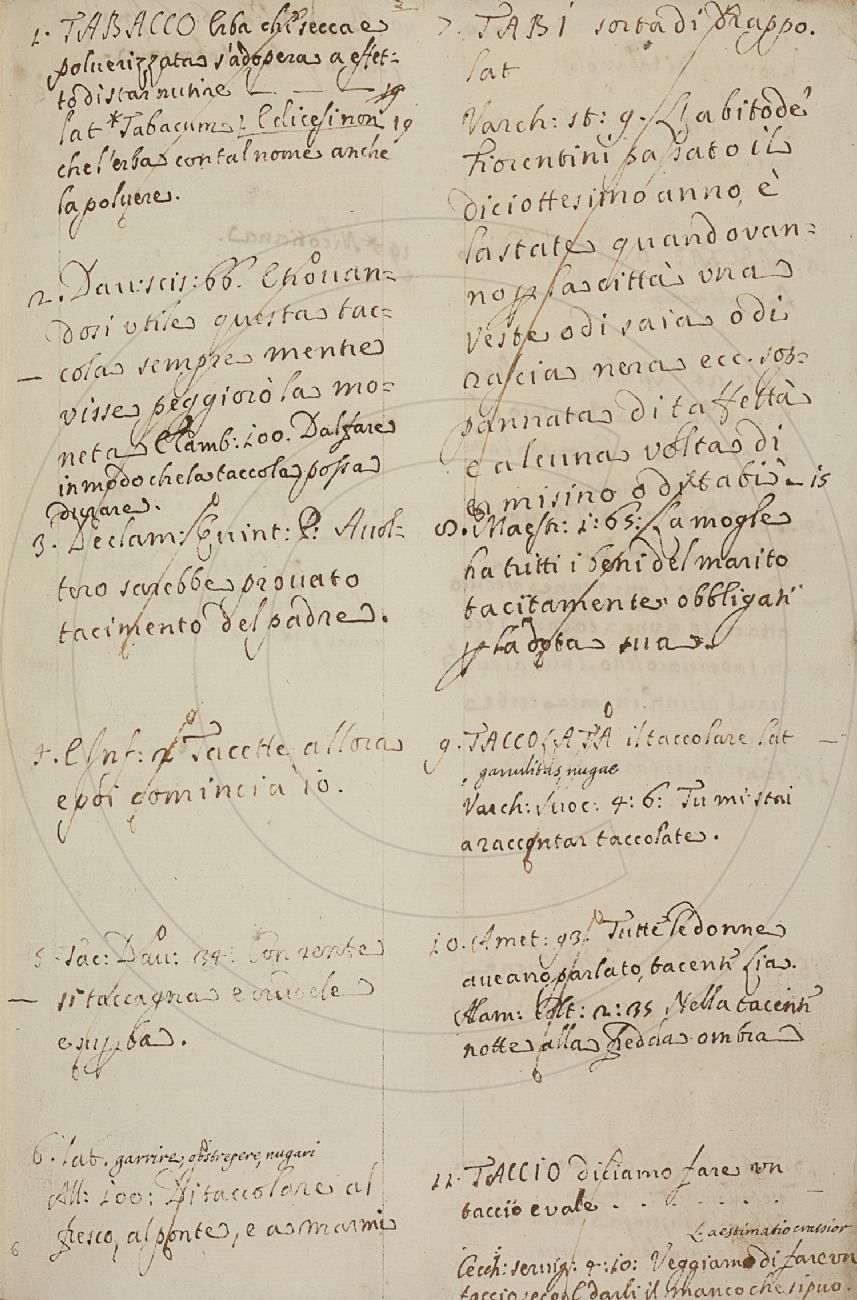 1. TABACCO Erba che secca e
poluerizzata s'adopera a effet=
to di starnutire — — — 19
lat * Tabacum; E dicesi non 19
che l'erba con tal nome anche
la poluere.
2. Dau: scis: 66. E trouan=
dosi utile questa tac=
— cola sempre mentre
visse peggiorò la mo=
neta E Lamb: 100. Dal fare
in modo che la taccola possa
durare.
3. Declam: Quint: P: Auol=
tero sarebbe prouato
tacimento del padre.
4. E Inf: Tacette allora
e poi comincia' io.
5 Tac: Dau: 34: Con gente
— sì taccagna e crudele
e superba.
6. lat. garrire, obstrepere, nugari
All: 100: Di taccolare al
fresco, al ponte, e a marmi
6
7. TABÌ sorta di drappo.
lat
Varch: st: 9. L'abito de'
Fiorentini passato il
diciottesimo anno, è
la state quando van=
no p la città una
veste o di saia o di
rascia nera ecc. sop=
pannata di taffettà
e alcuna volta di
ermisino o di tabì — 15
8. Maestr: 1: 65: La moglie
ha tutti i beni del marito
tacitamente obbligati
p la dota sua.
9. TACCOLATA il taccolare lat —
garrulitas, nugae
Varch: Suoc: 4: 6: Tu mi stai
a raccontar taccolate.
10. Amet: 93. Tutte le donne
aueano parlato, tacenti Lia.
Alam: Colt: 2: 35 Nella tacente
notte alla fredda ombra
11. TACCIO diciamo fare un
taccio e vale . . . . . . —
L. aestimatio crassior
Cecch: seruig: 4: 10: Veggiamo di fare un
taccio darli il manco che si puo.